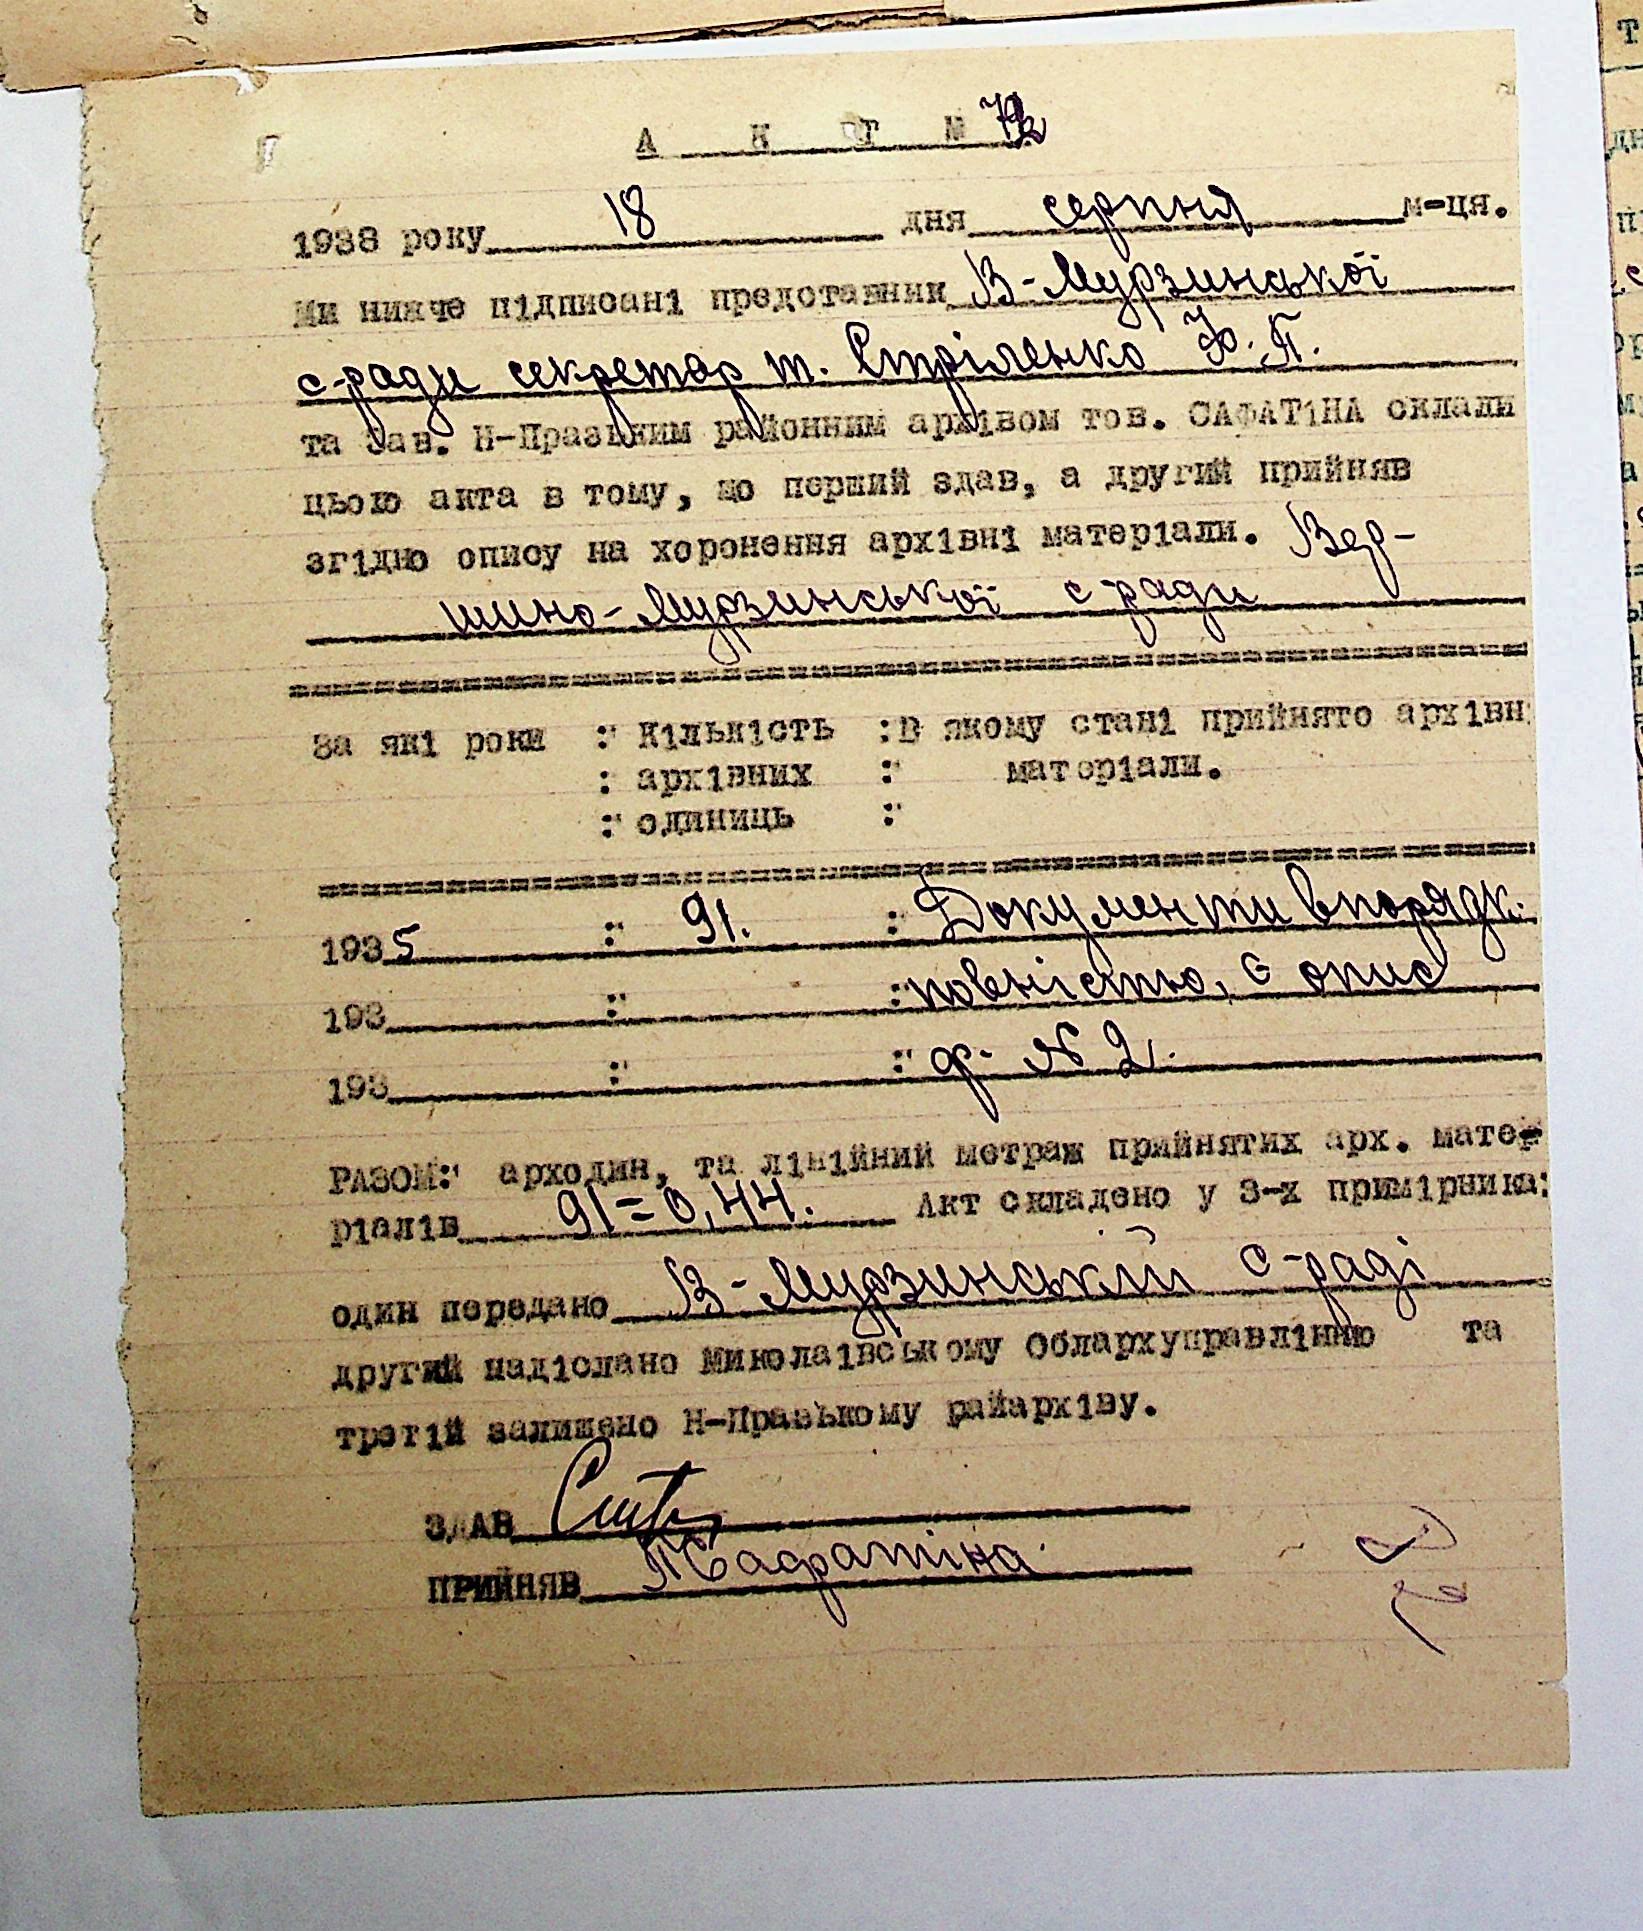 А К Т №
1938 року 18 дня серпня м-ця.
Ми нижче підписані представник В-Мурзинської
с-ради секретар т. Стріленко Ф. П.
та Зав. Н-Празьким районним архівом тов. САФАТІНА склали
цього акта в тому, що перший здав, а другий прийняв
згідно опису на хоронення архівні матеріали. Вер-
шино-Мурзинської с-ради
За які роки : Кількість : В якому стані прийнято архівн
: архівних : матеріали.
: одиниць :
1935 : 91. : Документи впорядк.
193 : : повністю, є опис
193 : : ф. № 2.
РАЗОМ: арходин, та лінійний метраж прийнятих арх. мате-
ріалів 91=0,44. Акт складено у 3-х примірника:
один передано В-Мурзинській с-раді
другий надіслано Миколаівському Обларху­правлінню та
третій залишено Н-Празькому райархіву.
ЗДАВ
ПРИЙНЯВ Сафатіна